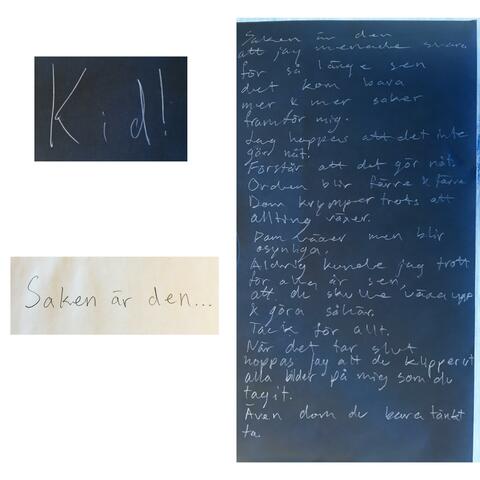 Kid!
Saken är den...
Saken är den
att jag menade svara
för så länge sen
det kom bara
mer & mer saker
framför mig.
Jag hoppas att det inte
gör nåt.
Förstår att det gör nåt.
Orden blir färre & färre
Dom krymper trots att
allting växer.
Dom växer men blir
osynliga.
Aldrig kunde jag trott
för alla år sen,
att du skulle växa upp
& göra såhär.
Tack för allt.
När det tar slut
hoppas jag att du klipper ut
alla bilder på mig som du
tagit.
Även dom du bara tänkt
ta.